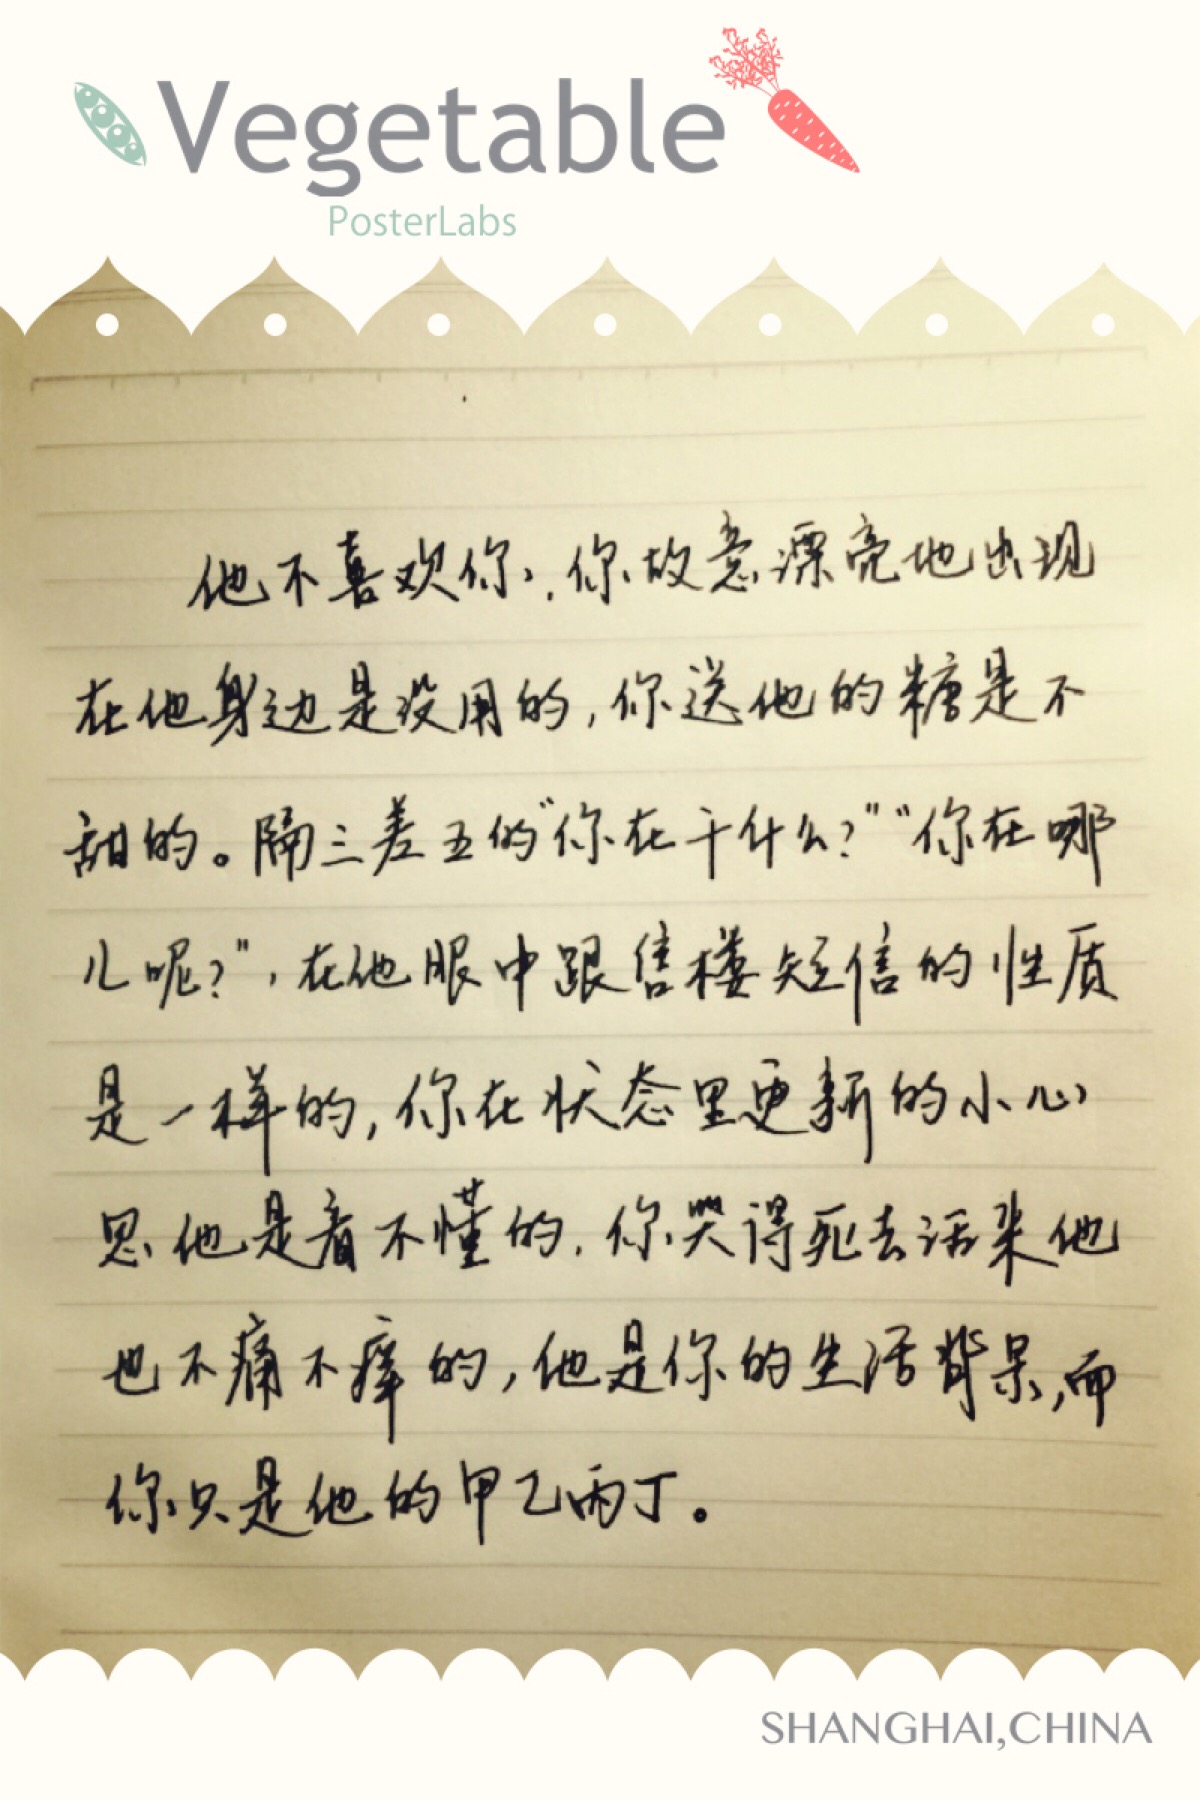 Vegetable
PosterLabs
他不喜欢你，你故意漂亮地出现
在他身边是没用的，你送他的糖是不
甜的。隔三差五的“你在干什么？”“你在哪
儿呢？”，在他眼中跟售楼短信的性质
是一样的，你在状态里更新的小心
思他是看不懂的，你哭得死去活来他
也不痛不痒的，他是你的生活背景，而
你只是他的甲乙丙丁。
SHANGHAI,CHINA